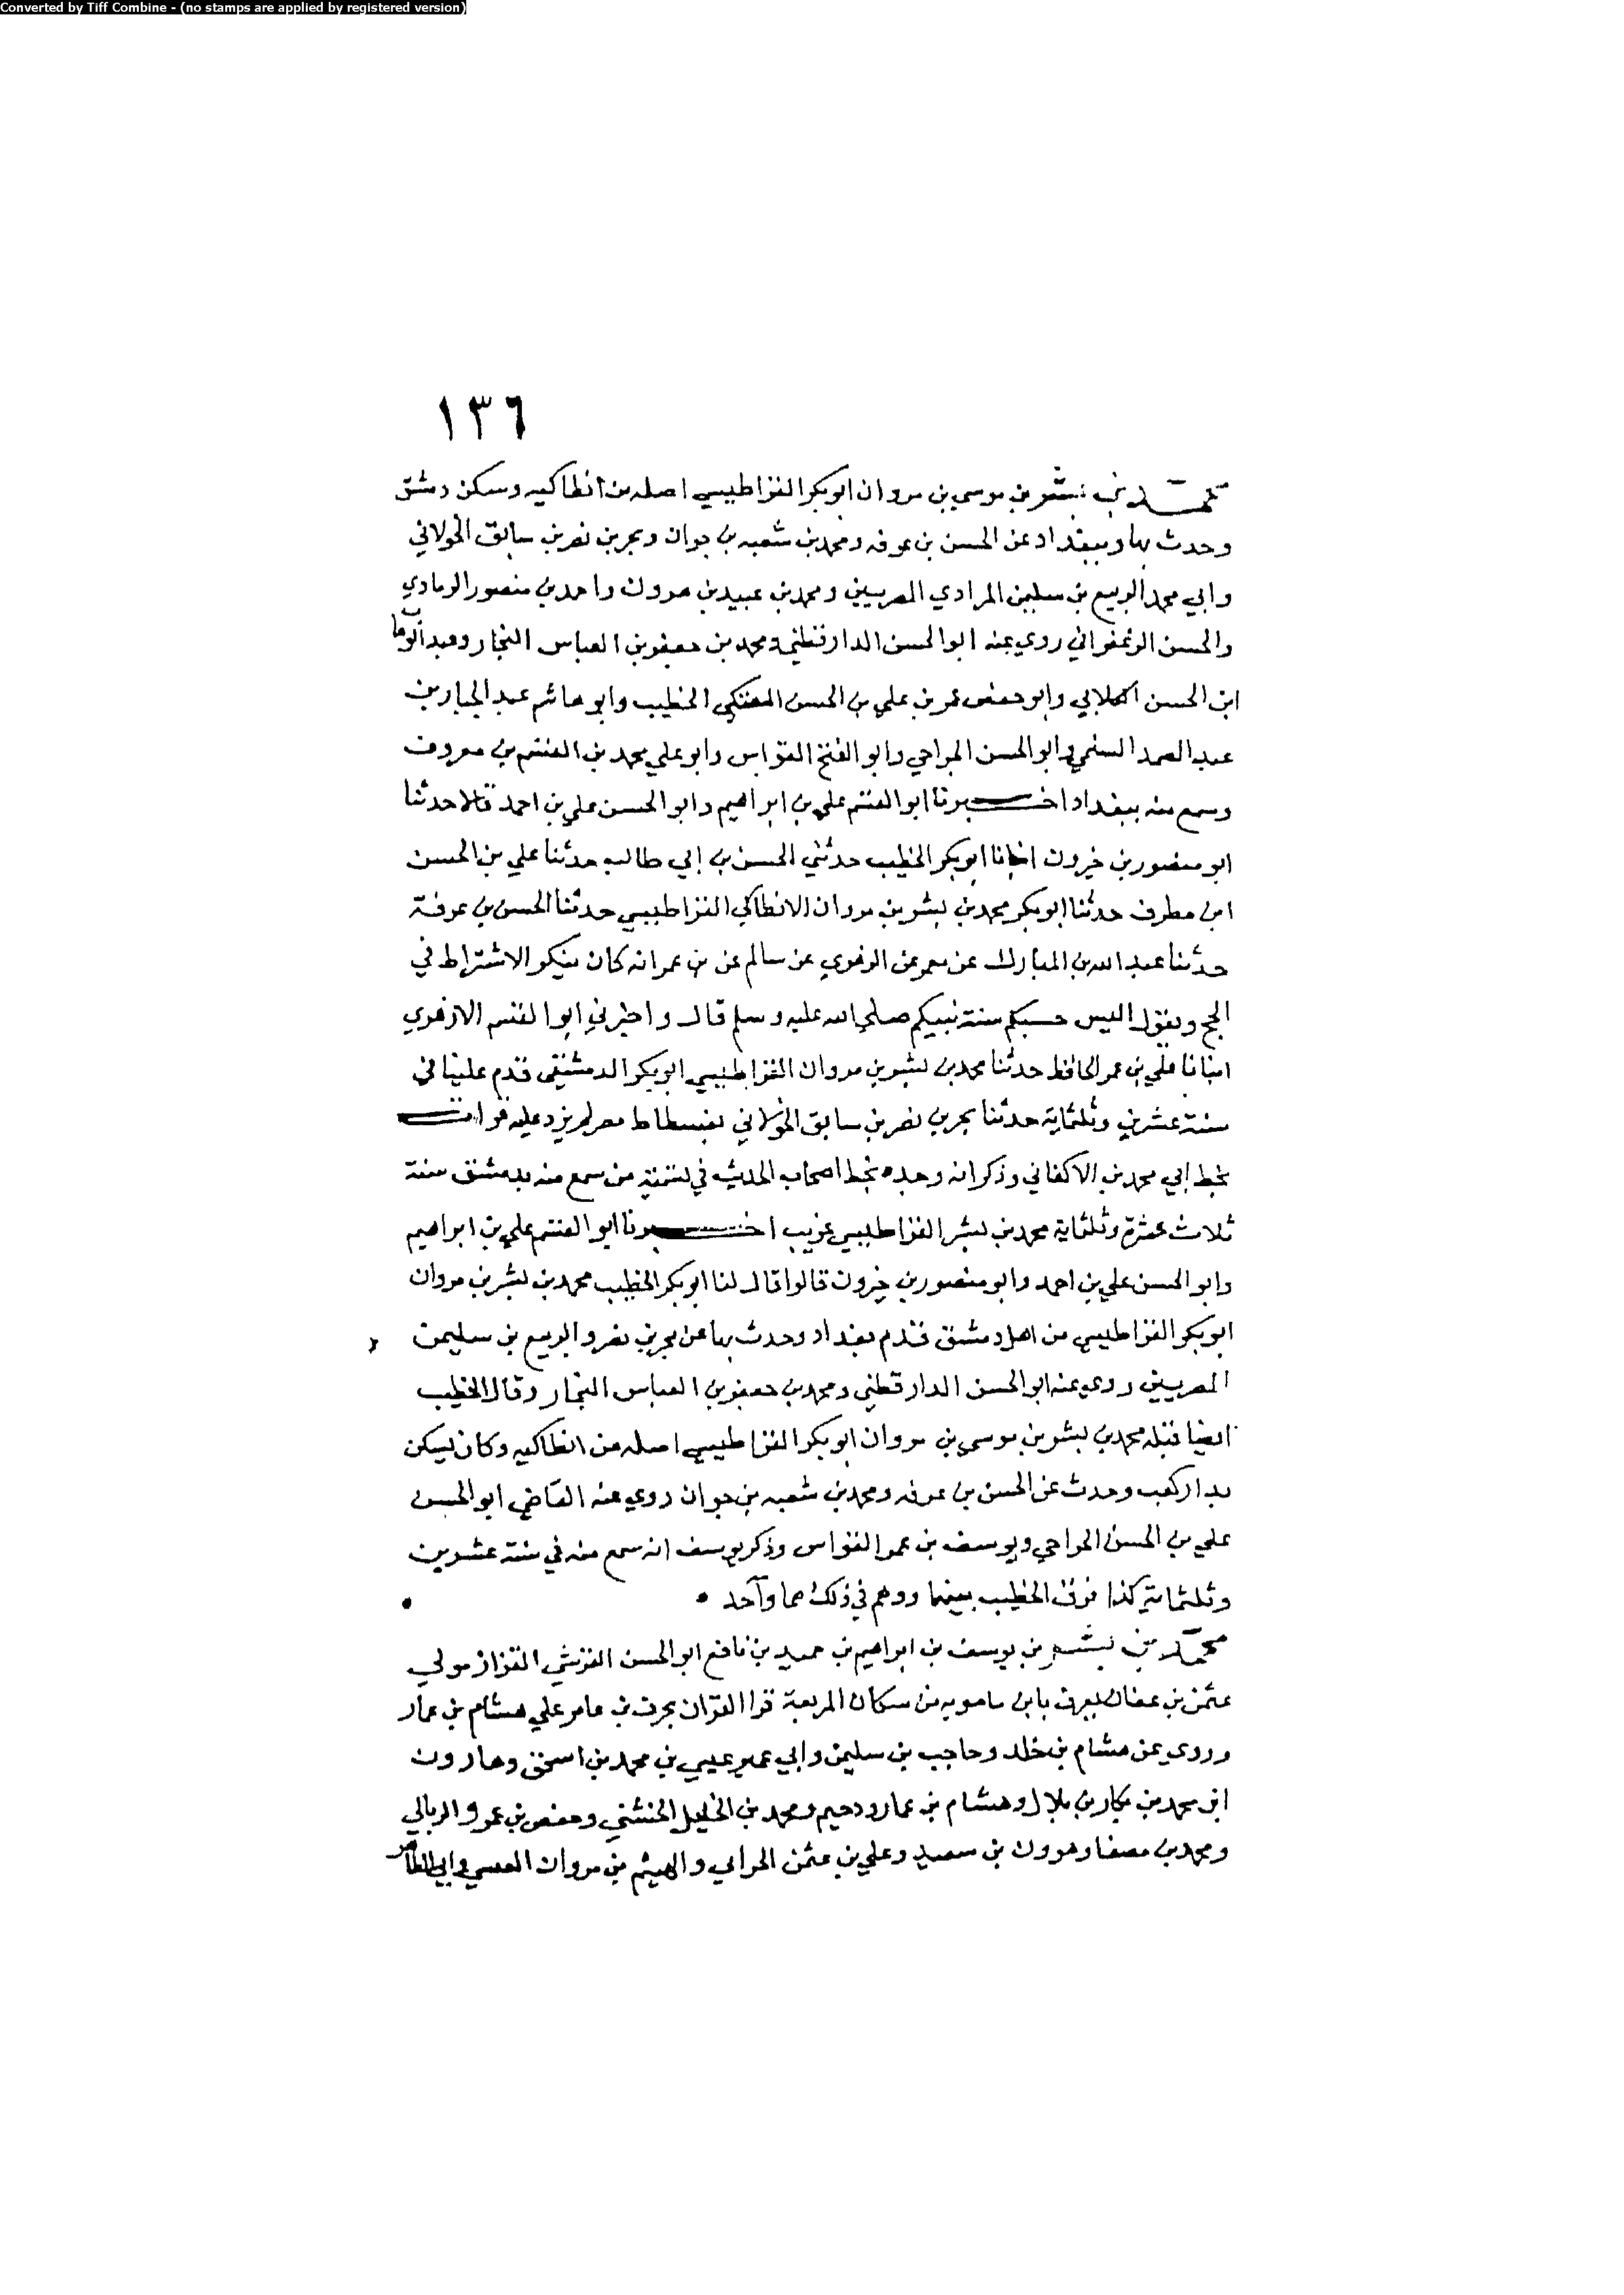 Converted by Tiff Combine - (no stamps are applied by registered version)
١٣٦
محمد بن بشر بن موسى بن مروان ابو بكر القراطيسي اصله من انطاكيه وسكن دمشق
وحدث بها وببغداد عن الحسن بن عرفه ومحمد بن شعبه بن جوان وبحر بن نصر بن سابق الخولاني
وابي محمد الربيع بن سليمن المرادي المصريين ومحمد بن عبيد بن هرون واحمد بن منصور الرمادي
والحسن الزعفراني روي عنه ابو الحسن الدارقطني ومحمد بن جعفر بن العباس النجار وعبد الوهاب
ابن الحسن الكلابي وابو حفص عمر بن علي بن الحسن العتكي الخطيب وابو هاشم عبد الجبار بن
عبد الصمد السلمي وابو الحسن الجراحي وابو الفتح القواس وابو علي محمد بن القسم بن معروف
وسمع منه ببغداد اخبرنا ابو القسم علي بن ابراهيم وابو الحسن علي بن احمد قالا حدثنا
ابو منصور بن خيرون انبانا ابو بكر الخطيب حدثني الحسن بن ابي طالب حدثنا علي بن الحسن
ابن مطرف حدثنا ابو بكر محمد بن بشر بن مروان الانطاكي القراطيسي حدثنا الحسن بن عرفة
حدثنا عبد الله بن المبارك عن معمر عن الزهري عن سالم عن بن عمر انه كان ينكر الاشتراط في
الحج ويقول اليس حسبكم سنة نبيكم صلى الله عليه وسلم قال واخبرني ابو القسم الازهري
انبانا علي بن عمر الحافظ حدثنا محمد بن بشر بن مروان القراطيسي ابو بكر الدمشقي قدم علينا في
سنة عشرين وثلثماية حدثنا بحر بن نصر بن سابق الخولاني بفسطاط مصر لم يزد عليه قرات
بخط ابي محمد بن الاكفاني وذكر انه وجده بخط اصحاب الحديث في تسمية من سمع منه بدمشق سنة
ثلاث عشرة وثلثماية محمد بن بشر القراطيسي غريب اخبرنا ابو القسم علي بن ابراهيم
وابو الحسن علي بن احمد وابو منصور بن خيرون قالوا قال لنا ابو بكر الخطيب محمد بن بشر بن مروان
ابو بكر القراطيسي من اهل دمشق قدم بغداد وحدث بها عن بحر بن نصر والربيع بن سليمن
المصريين روى عنه ابو الحسن الدارقطني ومحمد بن جعفر بن العباس النجار وقال الخطيب
ايضا قبله محمد بن بشر بن موسى بن مروان ابو بكر القراطيسي اصله من انطاكيه وكان يسكن
بدار كعب وحدث عن الحسن بن عرفه ومحمد بن شعبه بن جوان روي عنه القاضي ابو الحسن
علي بن الحسن الجراحي ويوسف بن عمر القواس وذكر يوسف انه سمع منه في سنة عشرين
وثلثماية كذا فرق الخطيب بينهما ووهم في ذلك هما واحد
محمد بن بشر بن يوسف بن ابراهيم بن حميد بن نافع ابو الحسن القرشي القزاز مولى
عثمن بن عفان يعرف بابن مامويه من سكان المربعة قرا القرآن بحرف بن عامر علي هشام بن عمار
وروي عن هشام بن خلد وحاجب بن سليمن وابي عمير عيسى بن محمد بن اسحق وهارون
ابن محمد بن بكار بن بلال وهشام بن عمار ودحيم ومحمد بن الخليل الخشني وحفص بن عمرو الربالي
ومحمد بن مصفا وهرون بن سعيد وعلي بن عثمن الحراني والهيثم بن مروان العنسي وابي الطاهر